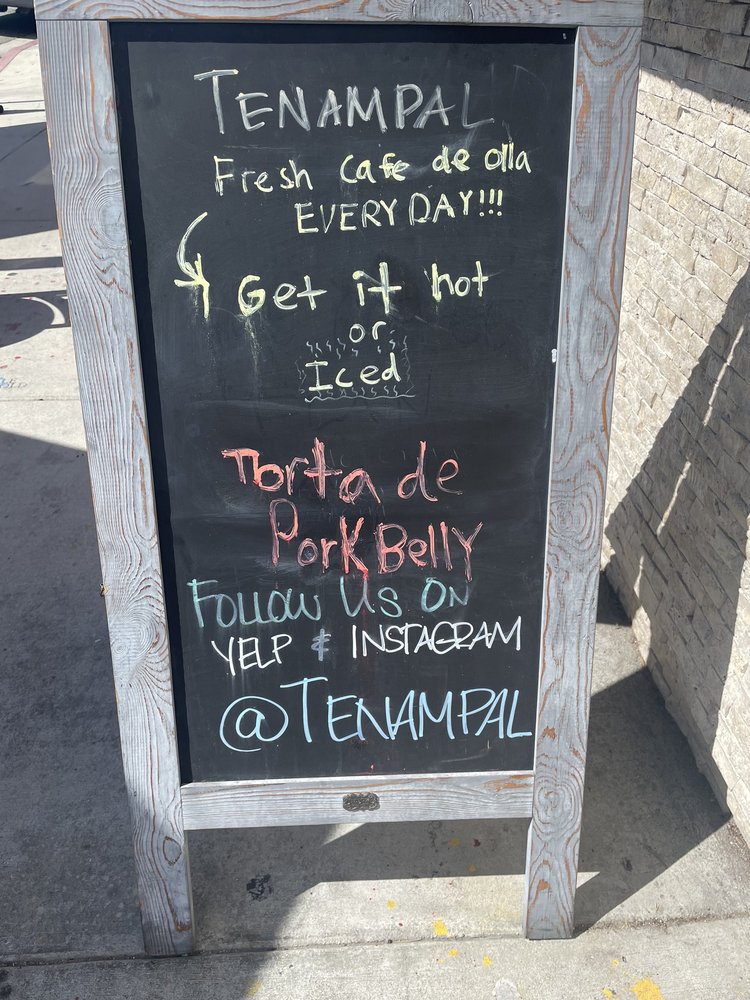 TENAMPAL
Fresh Cafe de olla
EVERY DAY!!!
Get it hot
or
Iced
Torta de
Pork Belly
FOLLOW US ON
YELP & INSTAGRAM
@TENAMPAL